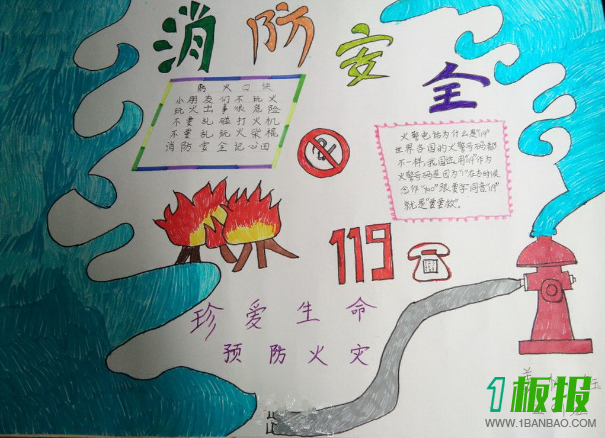 消防安全
防火口诀
小朋友们不玩火
玩火出事很危险
不要乱碰打火机
不要乱玩火柴棍
消防安全记心田
火警电话为什么是"119"
世界各国的火警号码都
不一样,我国选用"119"作为
火警号码是因为"1"在古时候
念作"yao"跟要字同音"119"
就是"要要救"。
119
珍爱生命
预防火灾
1板报
WWW.1BANBAO.COM